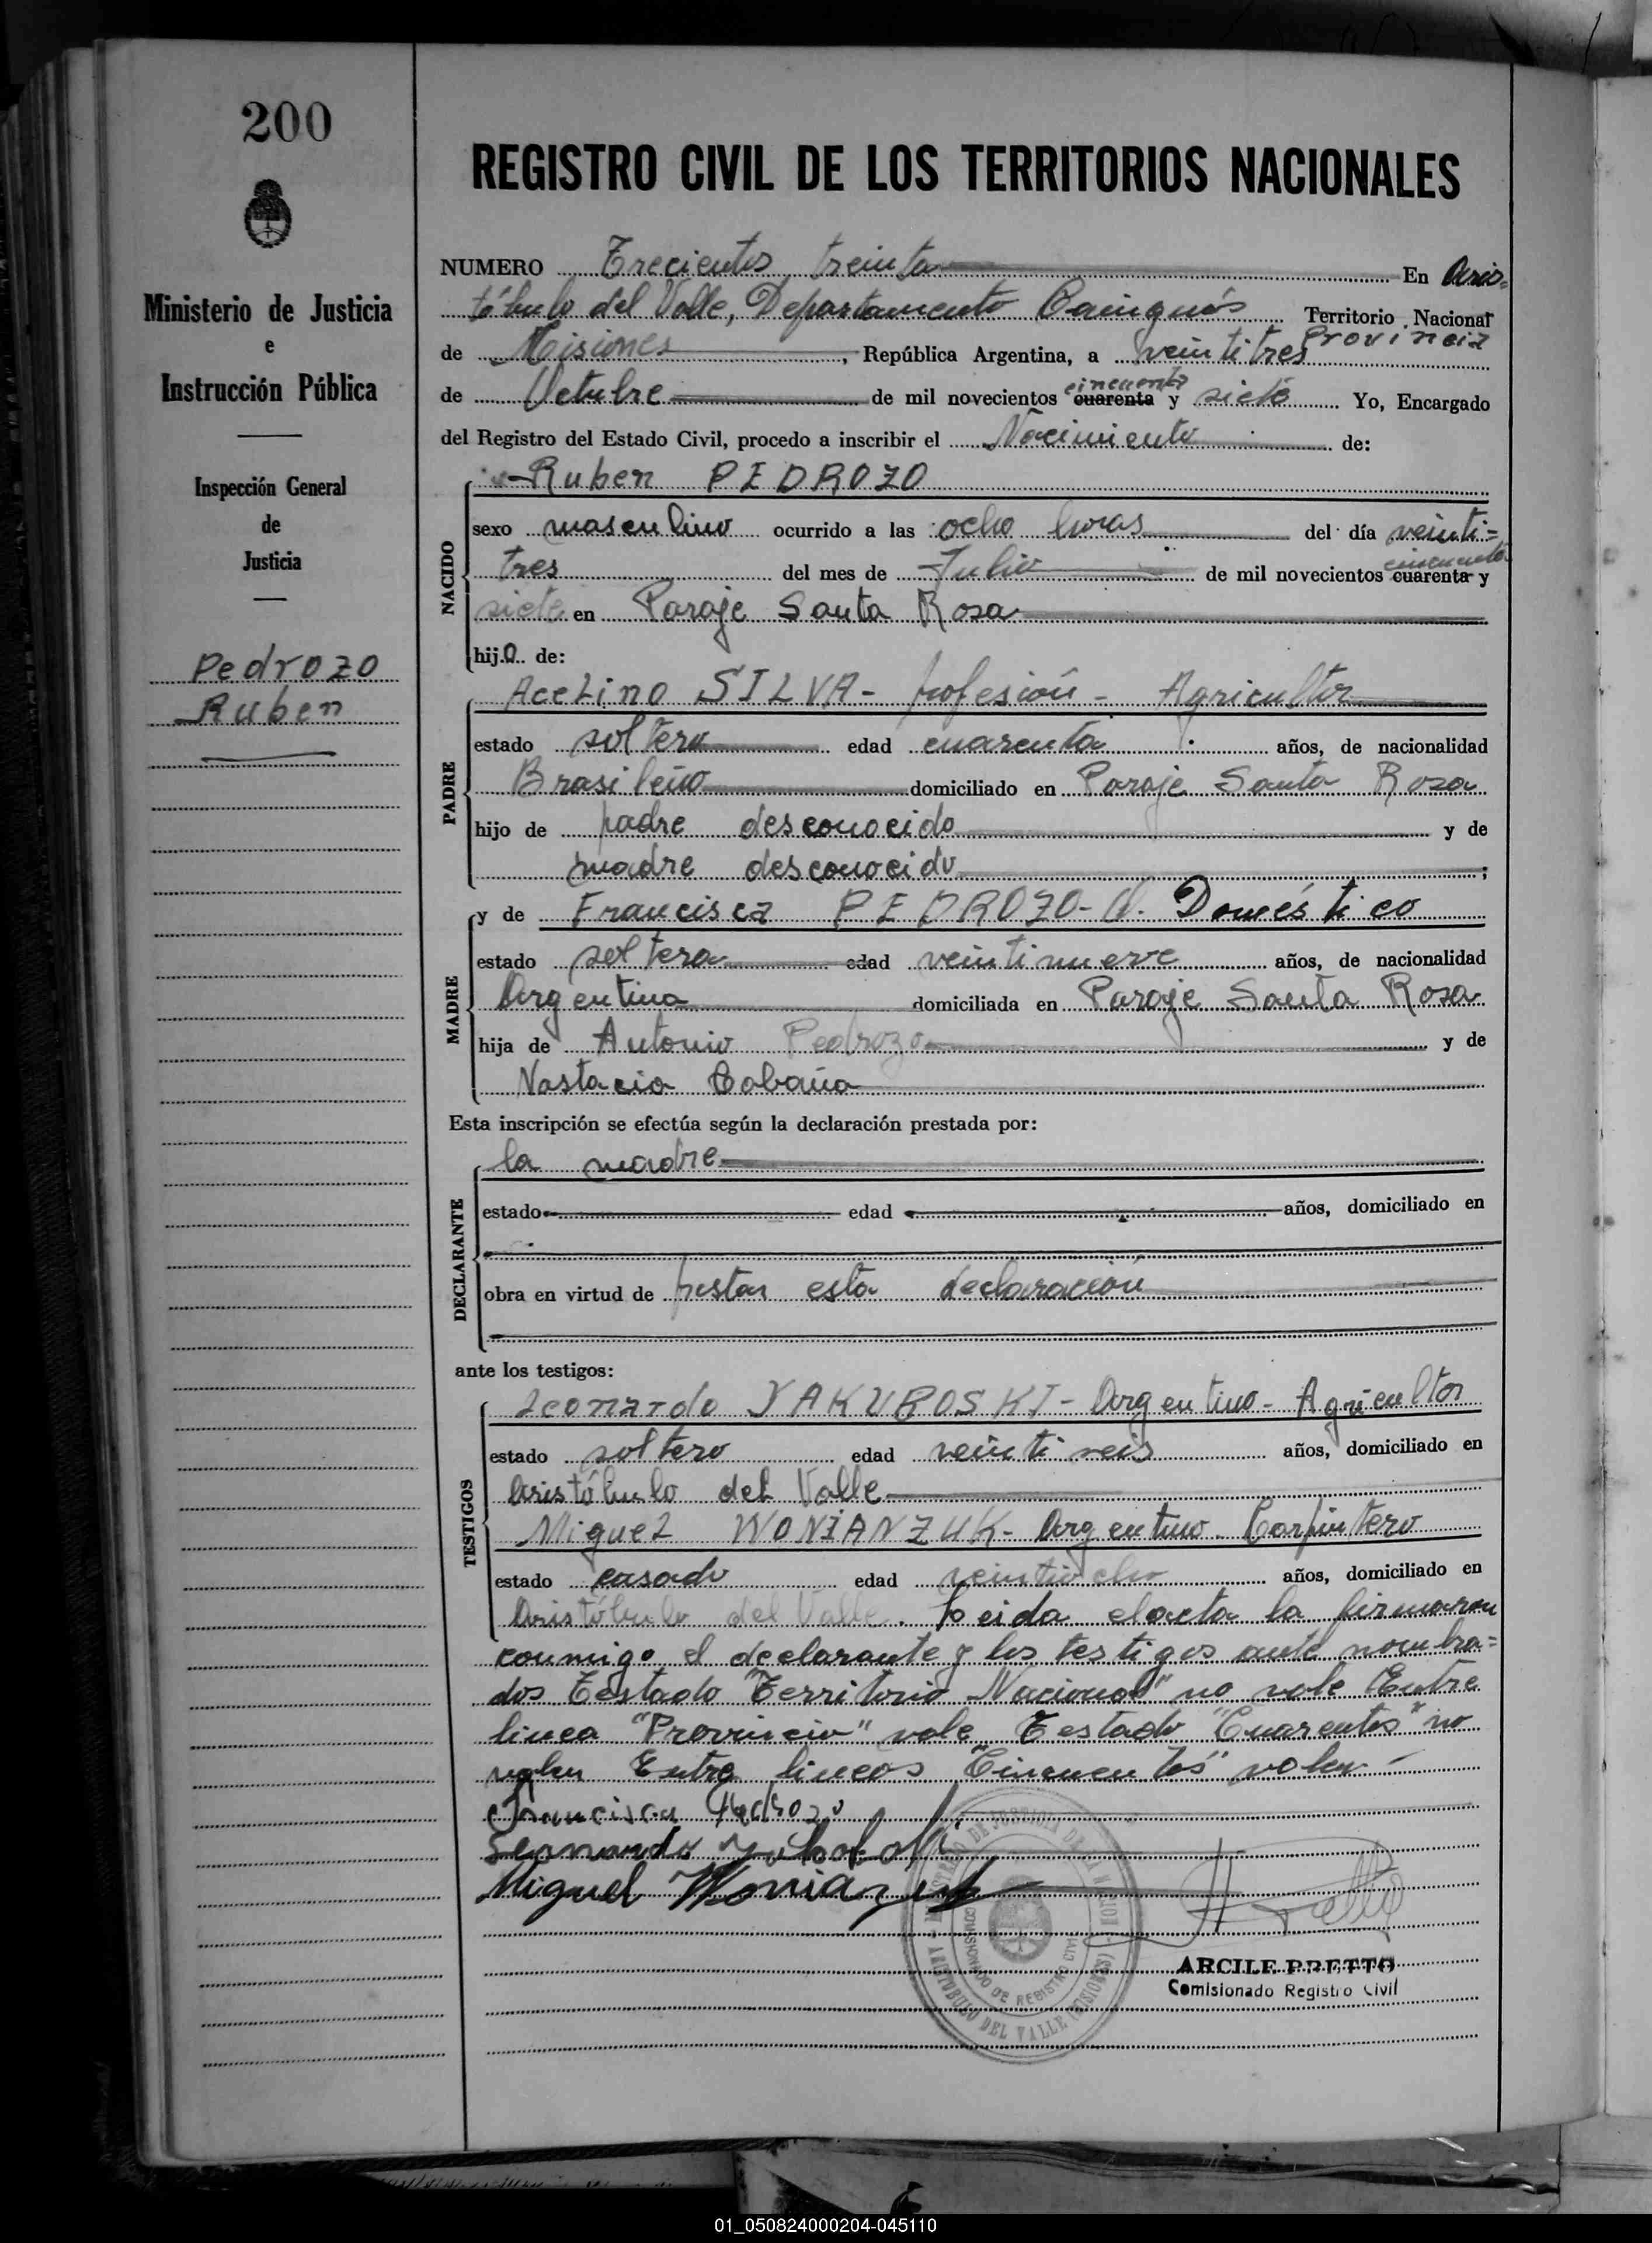 200
Ministerio de Justicia
e
Instrucción Pública
Inspección General
de
Justicia
Pedrozo
Ruben
REGISTRO CIVIL DE LOS TERRITORIOS NACIONALES
NUMERO Trecientos treinta En Aris-
tóbulo del Valle, Departamento Cainguás Territorio Nacional
Provincia
de Misiones, República Argentina, a veintitres
cincuenta
de Octubre de mil novecientos cuarenta y siete Yo, Encargado
del Registro del Estado Civil, procedo a inscribir el Nacimiento de:
NACIDO
Ruben PEDROZO
sexo masculino ocurrido a las ocho horas del día veinti=
cincuenta
tres del mes de Julio de mil novecientos cuarenta y
siete en Paraje Santa Rosa
hijo de:
PADRE
Acelino SILVA- profesión - Agricultor
estado soltero edad cuarenta años, de nacionalidad
Brasileño domiciliado en Paraje Santa Rosa
hijo de padre desconocido y de
madre desconocido;
MADRE
y de Francisca PEDROZO- Q. Doméstico
estado soltera edad veintinueve años, de nacionalidad
Argentina domiciliada en Paraje Santa Rosa
hija de Antonio Pedrozo y de
Nastacia Cabaña
Esta inscripción se efectúa según la declaración prestada por:
DECLARANTE
la madre
estado edad años, domiciliado en
obra en virtud de prestar esta declaración
ante los testigos:
TESTIGOS
Leonardo YAKUBOSKI - Argentino - Agricultor
estado soltero edad veintiseis años, domiciliado en
Aristóbulo del Valle
Miguel WONIANZUK - Argentino - Carpintero
estado casado edad veintiocho años, domiciliado en
Aristóbulo del Valle. Leida el acta la firmaron
conmigo el declarante y los testigos ante nombra=
dos Testado "Territorio Nacional" no vale Entre
linea "Provincia" vale Testado "Cuarentas" no
valen Entre lineas "Cincuentas" valen -
Francisca Pedrozo
Miguel Woniazuk
MINISTERIO DE JUSTICIA DE LA NACION
COMISIONADO DE REGISTRO CIVIL
ARISTOBULO DEL VALLE (MISIONES)
ARCILE PRETTO
Comisionado Registro Civil
01_050824000204-045110